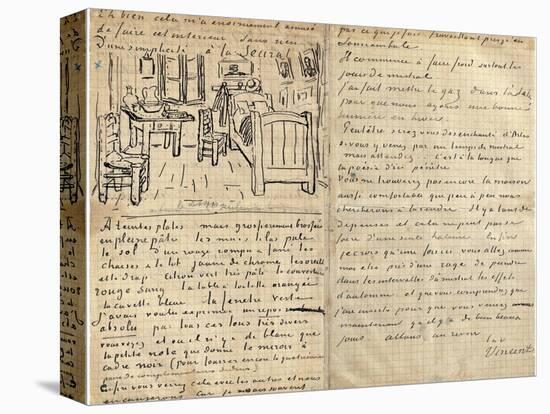 Eh bien cela m'a enormement amusé
de faire cet interieur sans rien
D'une simplicité à la Seurat
à teintes plates mais grossierement brossées
en pleine pâte les murs lilas pale
le sol d'un rouge rompu & fané les
chaises & le lit jaune de chrome les oreillers
et le drap citron vert très pâle la couverture
rouge sang la table à toilette orangée
la cuvette bleue la fenetre verte
j'avais voulu exprimer un repos
absolu par tous ces tons très divers
vous voyez et où il n'y a de blanc que
la petite note que donne le miroir à
cadre noir (pour fourrer encore la quatrième
paire de complementaires dedans)
Enfin vous verrez cela avec les autres et nous
en causerons car je ne sais souvent
pas ce que je fais travaillant presqu'en
somnambule
Il commence à faire froid surtout les
jours de mistral
j'ai fait mettre le gaz dans l'atelier
pour que nous ayons une bonne
lumière en hiver
Peutêtre serez vous desenchanté d'Arles
si vous y venez par un temps de mistral
mais attendez .. C'est à la longue que
la poésie d'ici pénètre
Vous ne trouverez pas encore la maison
aussi confortable que peu à peu nous
chercherons à la rendre Il y a tant de
dépenses et cela ne peut pas se
faire d'une seule haleine. Enfin
je crois qu'une fois ici vous allez comme
moi etre pris d'une rage de peindre
dans les intervalles du mistral les effets
d'automne et que vous comprendrez que
j'aie insisté pour que vous veniez
maintenant qu'il y a de bien beaux
jours allons au revoir
t à v
Vincent